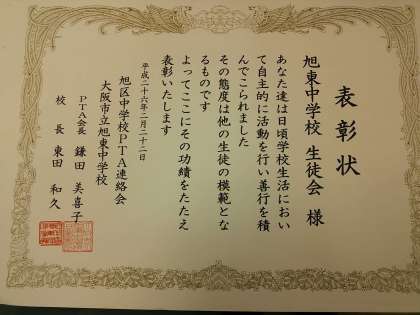 表彰状
旭東中学校 生徒会 様
あなた達は日頃学校生活におい
て自主的に活動を行い善行を積
んでこられました
その態度は他の生徒の模範とな
るものです
よってここにその功績をたたえ
表彰いたします
平成二十六年二月二十二日
旭区中学校PTA連絡会
大阪市立旭東中学校
PTA会長 鎌田 美喜子
校長 東田 和久